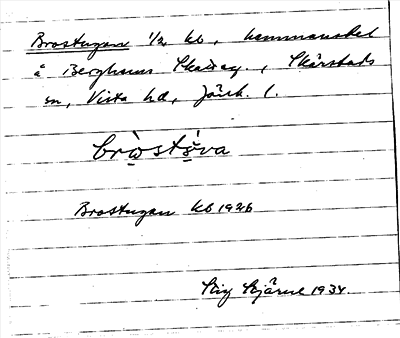 Brostugan 1/2 kb, hemmansdel
å Berghems Skatteg., Skärstads
sn, Vista hd, Jönk. l.
bròstúva
Brostugan kb 1926
Stig Stjärne 1934.